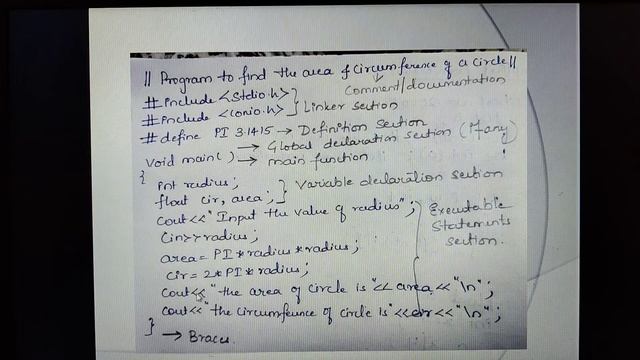 // Program to find the area & Circumference of a Circle //
Comment/documentation
# include <stdio.h>
# include <conio.h> } Linker section
# define PI 3.1415 → Definition section
→ Global declaration section (if any)
void main( ) → main function
{
int radius;
float cir, area; } Variable declaration section
cout<<"Input the value of radius";
cin>>radius;
area= PI*radius*radius;
cir= 2*PI*radius;
Executable
Statements
section.
cout<<"the area of circle is"<<area<<"\n";
cout<<"the circumfeunce of circle is"<<cir<<"\n";
} → Braces.